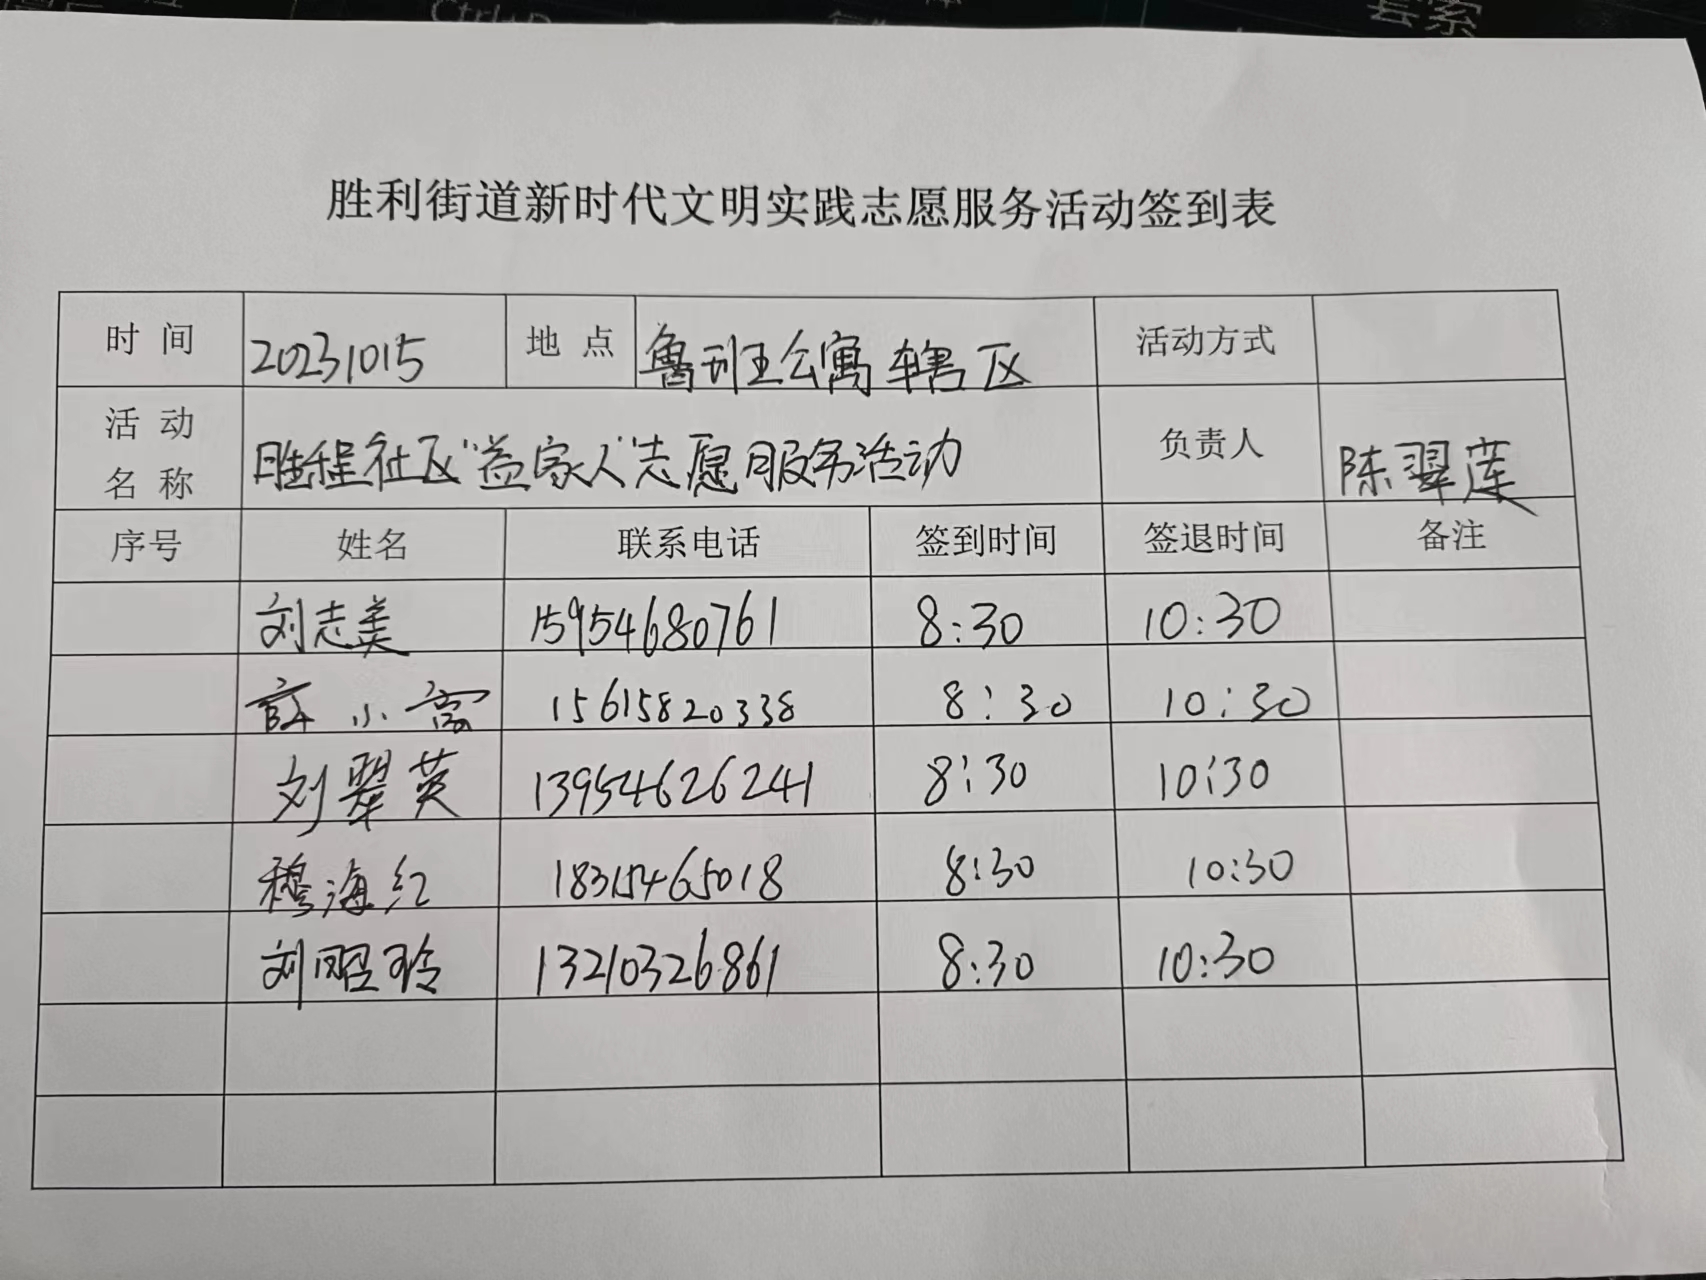 胜利街道新时代文明实践志愿服务活动签到表
时 间 20231015 地 点 鲁班公寓辖区 活动方式
活 动 名 称 胜程社区“益家人”志愿服务活动 负责人 陈翠莲
序号 姓名 联系电话 签到时间 签退时间 备注
刘志美 15954680761 8:30 10:30
薛小富 15615820338 8:30 10:30
刘翠英 13954626241 8:30 10:30
穆海红 18315465018 8:30 10:30
刘昭玲 13210326861 8:30 10:30
套索